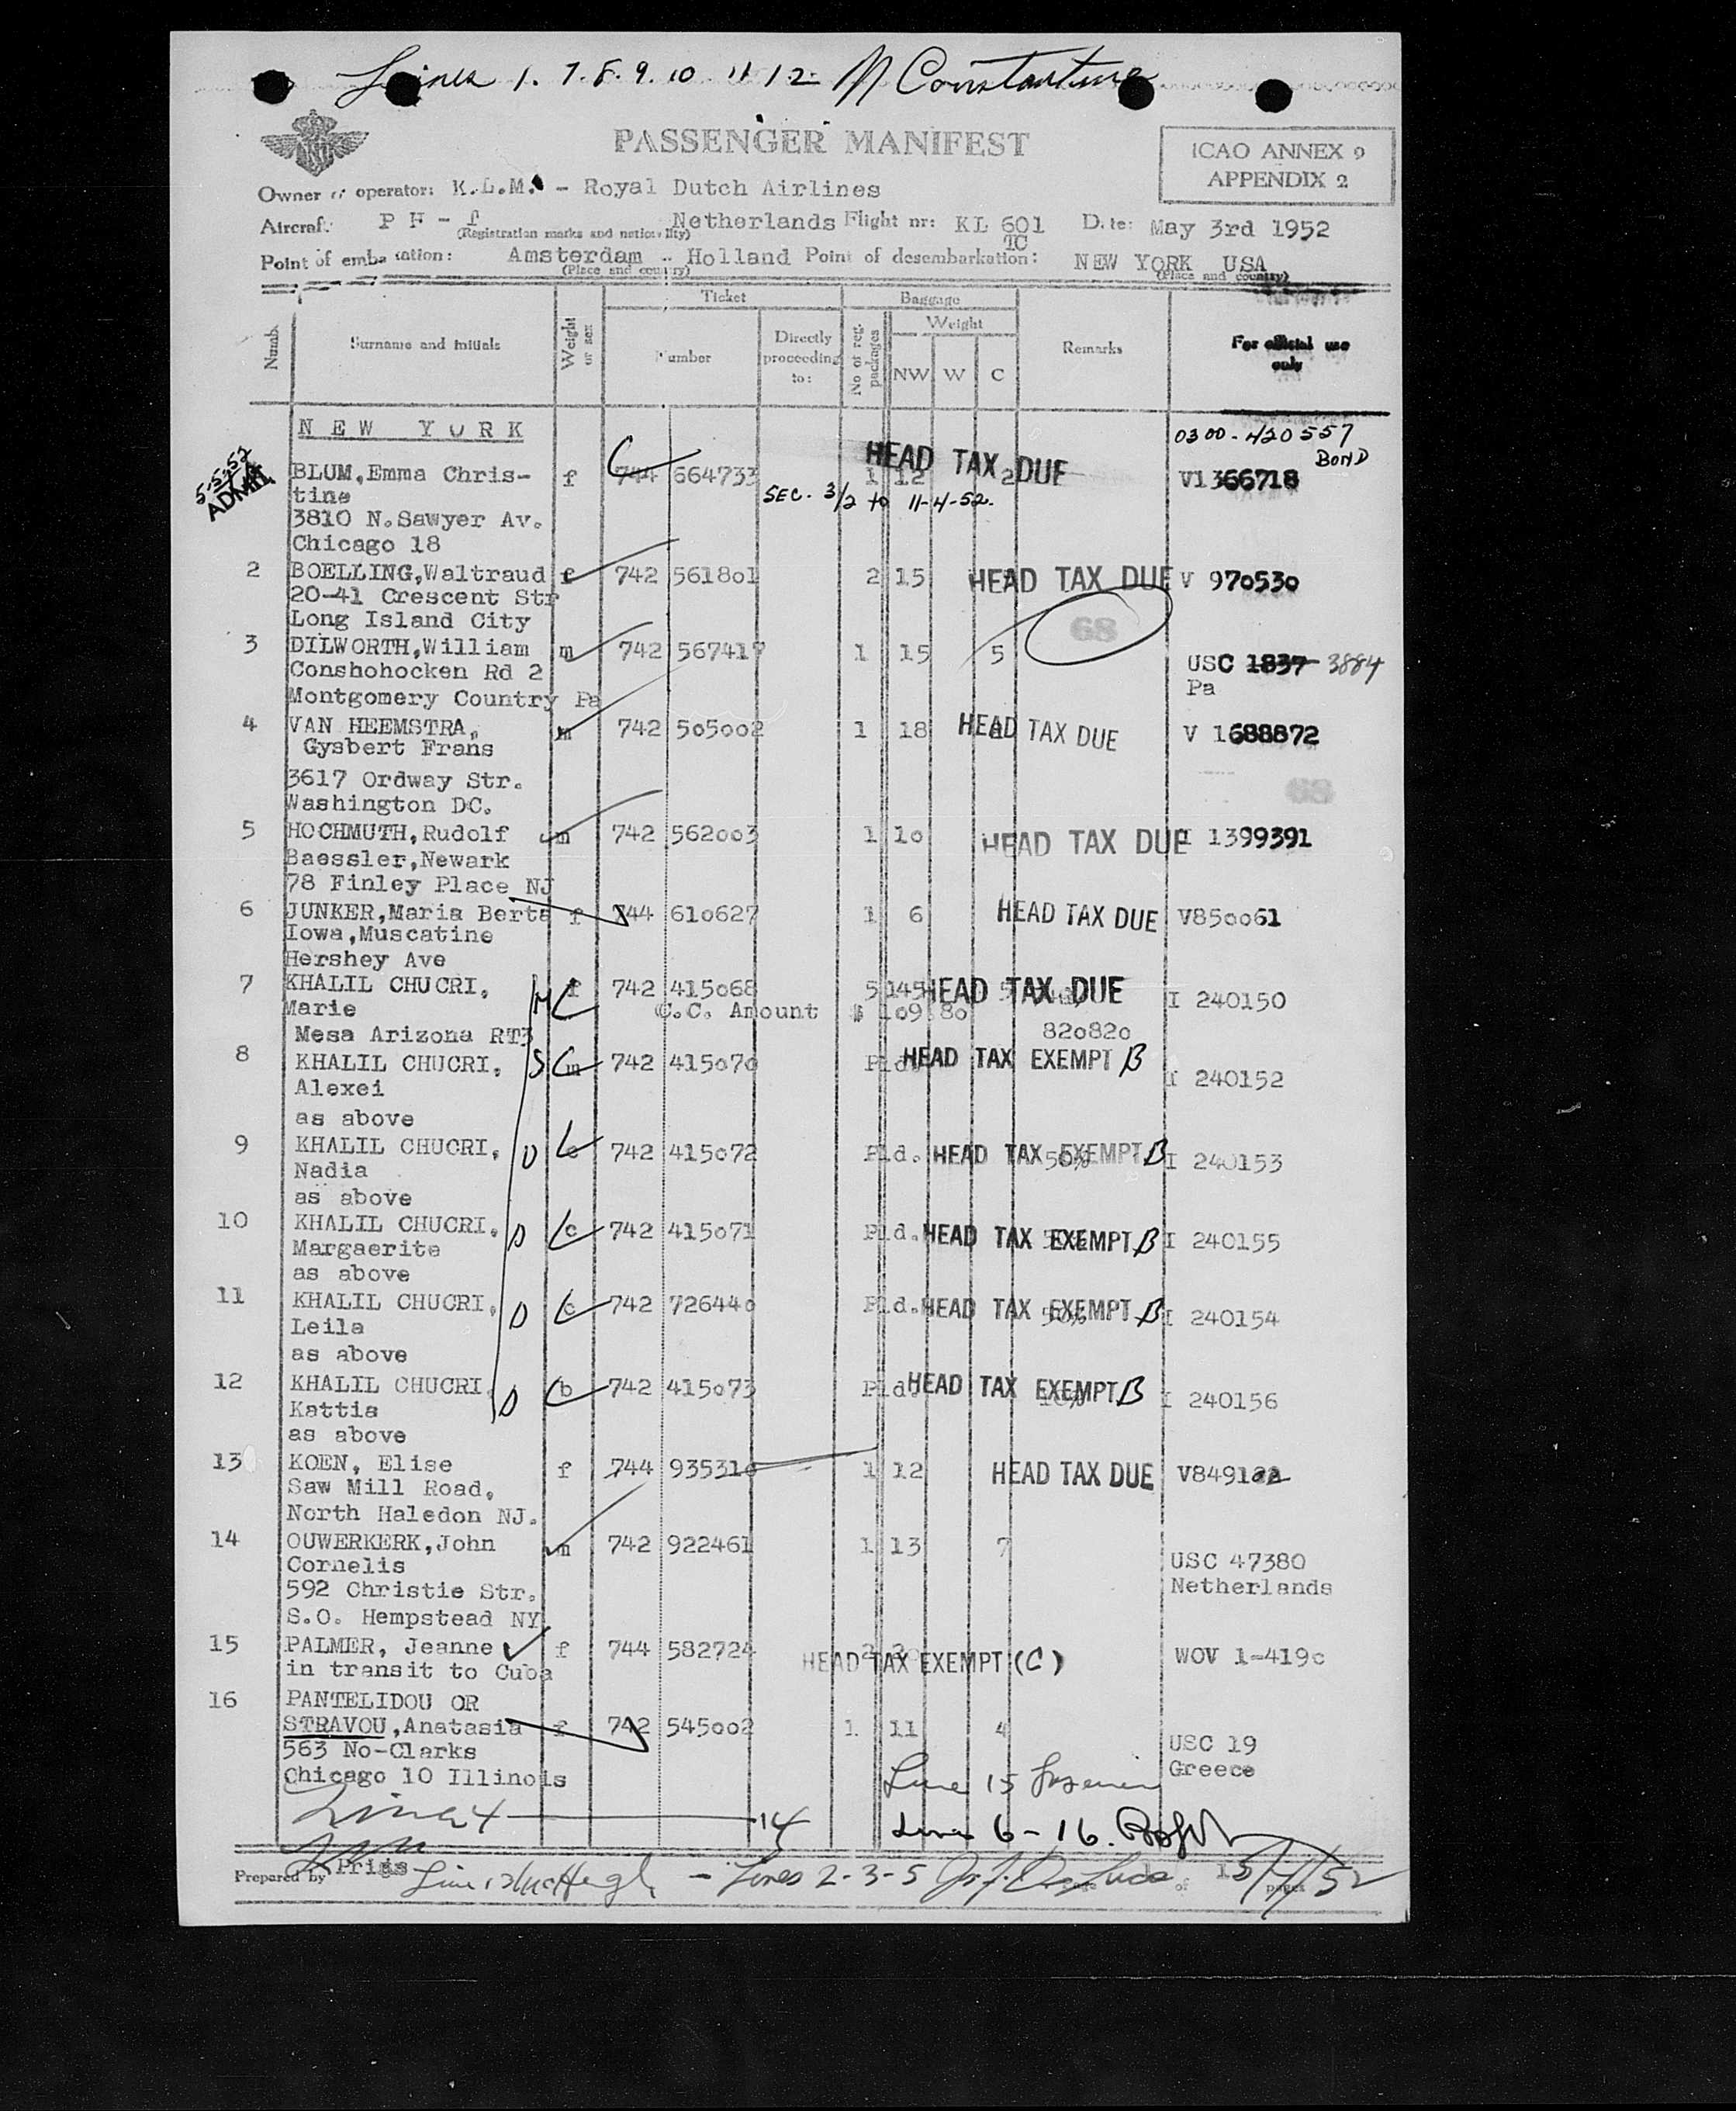 Lines 1. 7. 8. 9. 10 11 12 M Constantine
PASSENGER MANIFEST
ICAO ANNEX 9
APPENDIX 2
Owner or operator: K.L.M. - Royal Dutch Airlines
Aircraft: P H - Netherlands Flight nr: KL 601 Date: May 3rd 1952
(Registration marks and nationality) TC
Point of embarkation: Amsterdam - Holland Point of desembarkation: NEW YORK USA
(Place and country) (Place and country)
Numb. Surname and initials Weight or sex Ticket Number Directly proceeding to: Baggage No of reg. packages Weight NW W C Remarks For official use only
NEW YORK 0300-420557
BOND
5-5-52 ADMIT. BLUM,Emma Chris- f 744 664733 1 12 2 HEAD TAX DUE V1366718
tine SEC. 3/2 to 11-4-52.
3810 N.Sawyer Av.
Chicago 18
2 BOELLING,Waltraud f 742 561801 2 15 HEAD TAX DUE V 970530
20-41 Crescent Str
Long Island City 68
3 DILWORTH,William m 742 567417 1 15 5 USC 1837 3884
Conshohocken Rd 2 Pa
Montgomery Country Pa
4 VAN HEEMSTRA, m 742 505002 1 18 HEAD TAX DUE V 1688872
Gysbert Frans
3617 Ordway Str. 68
Washington DC.
5 HOCHMUTH,Rudolf m 742 562003 1 10 HEAD TAX DUE I 1399391
Baessler,Newark
78 Finley Place NJ
6 JUNKER,Maria Berta f 744 610627 1 6 HEAD TAX DUE V850061
Iowa,Muscatine
Hershey Ave
7 KHALIL CHUCRI, M f 742 415068 5 145 HEAD TAX DUE I 240150
Marie C.C. Amount $ 109.80
Mesa Arizona RT3 820820
8 KHALIL CHUCRI, S m 742 415070 Pld. HEAD TAX EXEMPT B I 240152
Alexei
as above
9 KHALIL CHUCRI, D c 742 415072 Pld. HEAD TAX EXEMPT B 50% I 240153
Nadia
as above
10 KHALIL CHUCRI, D c 742 415071 Pld. HEAD TAX EXEMPT B 50% I 240155
Margaerite
as above
11 KHALIL CHUCRI, D c 742 726440 Pld. HEAD TAX EXEMPT B 50% I 240154
Leila
as above
12 KHALIL CHUCRI, D b 742 415073 Pld. HEAD TAX EXEMPT B 10% I 240156
Kattia
as above
13 KOEN, Elise f 744 935310 1 12 HEAD TAX DUE V849122
Saw Mill Road,
North Haledon NJ.
14 OUWERKERK,John m 742 922461 1 13 7 USC 47380
Cornelis Netherlands
592 Christie Str.
S.O. Hempstead NY
15 PALMER, Jeanne f 744 582724 2 20 HEAD TAX EXEMPT (C) WOV 1-419c
in transit to Cuba
16 PANTELIDOU OR
STRAVOU,Anatasia f 742 545002 1 11 4 USC 19
563 No-Clarks Greece
Chicago 10 Illinois Line 15
Line 4 14
Line 6-16.
Prepared by Prigs Line - Lines 2-3-5 of 15 pages 5/4/52